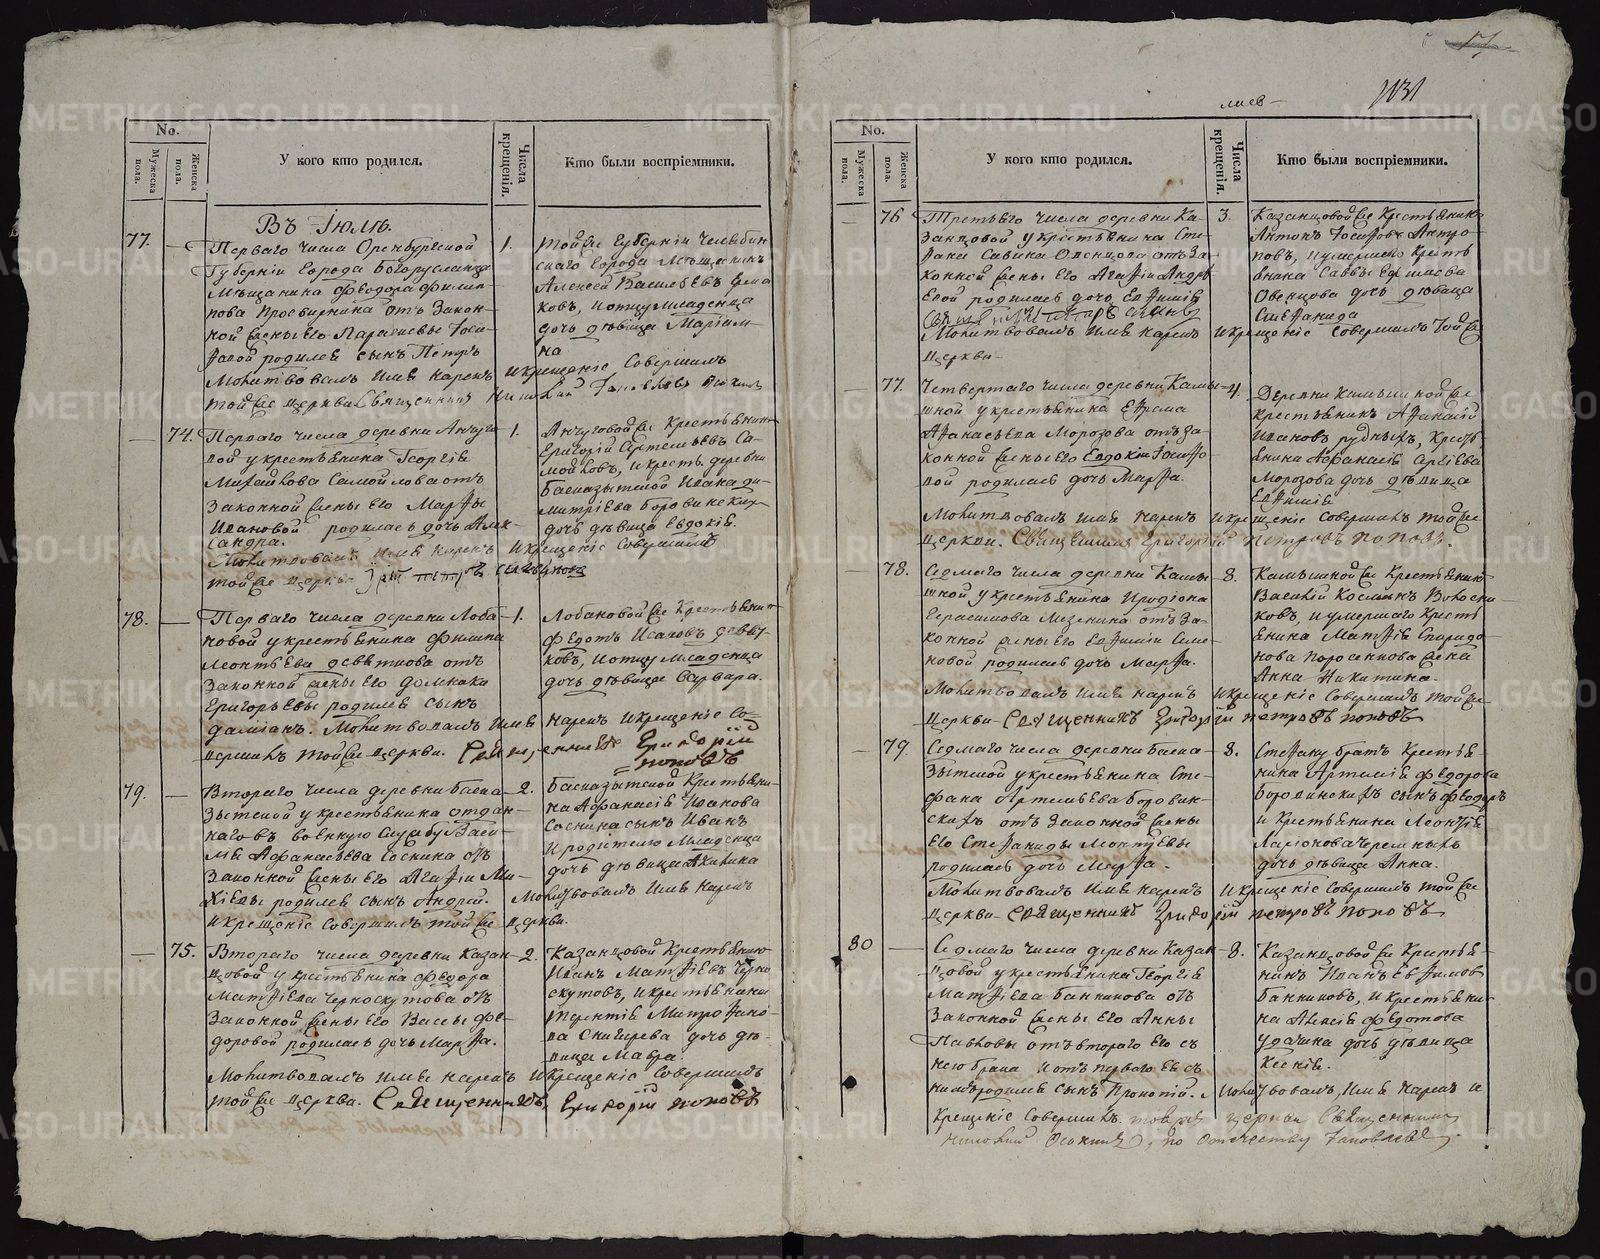 17
1131
лиев
No.
Мужеска пола.
Женска пола.
У кого кто родился.
Числа крещенія.
Кто были воспріемники.
Въ Іюлѣ.
77.
Перваго числа Оренбургской
Губерніи города Богоруслана
Мѣщанина Феодора Филип-
пова Просвирнина отъ закон-
ной жены его Параскевы Іоси-
фовой родился сынъ Петръ
Молитвовалъ имя нарекъ и крещеніе совершилъ
той же церкви Священникъ
1.
той же губерніи Челябин
скаго города мѣщанинъ
Алексей Васильевъ
ковъ, и отцу младенца
дочь дѣвица Маріам-
на
74.
Перваго числа деревни Анчуго-
вой у крестьянина Георгія
Михайлова Самойлова отъ
законной жены его Марѳы
Ивановой родилась дочь Алек-
сандра.
Молитвовалъ имя нарекъ и крещеніе совершилъ
той же церкви
1.
Анчуговой же крестьянинъ
Григорій Артемьевъ Са-
мойловъ, и крестьян. деревни
Басказыкской Ивана Ди-
митріева Боровинских
дочь дѣвица Евдокія.
78.
Перваго числа деревни Лоба-
новой у крестьянина Филипа
Леонтьева Девяткова отъ
законной жены его Домники
Григорьевы родился сынъ
Даміанъ. Молитвовалъ имя нарекъ и крещеніе со-
вершилъ той же церкви. Священникъ Григорій
Поповъ
1.
Лобановой же крестьянинъ
Федотъ Исаковъ Девят-
ковъ, и отцу младенца
дочь дѣвица Варвара.
79.
Втораго числа деревни Баска-
зыкской у крестьянина отдан-
наго въ военную службу Васи-
лія Афанасьева Соснина отъ
законной жены его Агафіи Ми-
хіевы родился сынъ Андрей. Молитвовалъ имя нарекъ
и крещеніе совершилъ той же церкви.
2.
Басказыкской крестьяни-
на Афанасія Иванова
Соснина сынъ Иванъ
и родителю младенца
дочь дѣвица Акилина
75.
Втораго числа деревни Казан-
цовой у крестьянина Федора
Матѳіева Черноскутова отъ
законной жены его Вассы Фе-
доровой родилась дочь Марѳа.
Молитвовалъ имя нарекъ и крещеніе совершилъ
той же церкви. Священникъ Григорій Поповъ
2.
Казанцовой крестьянинъ
Иванъ Матѳіевъ Черно
скутовъ, и крестьянина
Терентія Митрофано-
ва Снигирева дочь дѣ-
вица Мавра.
No.
Мужеска пола.
Женска пола.
У кого кто родился.
Числа крещенія.
Кто были воспріемники.
76
Третьяго числа деревни Ка-
занцовой у крестьянина Сте-
фана Савина Овенцова отъ за-
конной жены его Агафіи Андре
евой родилась дочь Евфимія
Молитвовалъ имя нарекъ и крещеніе совершилъ той же
церкви
3.
Казанцовой же крестьянинъ
Антонъ Іосифовъ Антро-
повъ, и умершаго крестья
янина Саввы Ефимова
Овенцова дочь дѣвица
Стефанида
77.
Четвертаго числа деревни Камы-
шной у крестьянина Ефрема
Афанасьева Морозова отъ за-
конной жены его Евдокіи Іосифо-
вой родилась дочь Марѳа.
Молитвовалъ имя нарекъ и крещеніе совершилъ той же
церкви. Священникъ Григорій Петровъ Поповъ.
4.
Деревни Камышной же
крестьянинъ Афанасій
Ивановъ Рудныхъ, кресть
янина Афанасія Сергіева
Морозова дочь дѣвица
Евфимія
78.
Седмаго числа деревни Камы-
шной у крестьянина Иродіона
Герасимова Мезенина отъ за-
конной жены его Евфиміи Симе-
новой родилась дочь Марѳа.
Молитвовалъ имя нарекъ и крещеніе совершилъ той же
церкви Священникъ Григорій Петровъ Поповъ
8.
Камышной же крестьянинъ
Василій Косминъ Волосни-
ковъ, и умершаго кресть
янина Матѳія Спиридо-
нова Поросенкова жена
Анна Никитина.
79.
Седмаго числа деревни Баска-
зыкской у крестьянина Сте-
фана Артемьева Боровин-
скихъ отъ законной жены
его Стефаниды Леонтіевы
родилась дочь Марѳа.
Молитвовалъ имя нарекъ и крещеніе совершилъ той же
церкви Священникъ Григорій Петровъ Поповъ
8.
Стефану братъ крестья-
нина Артемія Федорова
Боровинскихъ сынъ Феодоръ
и крестьянина Леонтія
Ларіонова Черемныхъ
дочь дѣвица Анна.
80
Седмаго числа деревни Казан-
цовой у крестьянина Георгія
Матѳіева Банникова отъ
законной жены его Анны
Павловы отъ втораго его съ
нею брака и отъ перваго ея съ
нимъ родился сынъ Прокопій. Молитвовалъ, имя нарекъ и
крещеніе совершилъ тояже церкви Священникъ
Николай Оcокинъ, по отечеству Іаковлевъ.
8.
Казанцовой же крестья-
нинъ Иванъ Ефимовъ
Банниковъ, и крестьяни-
на Алексія Федотова
Удачина дочь дѣвица
Ксенія.